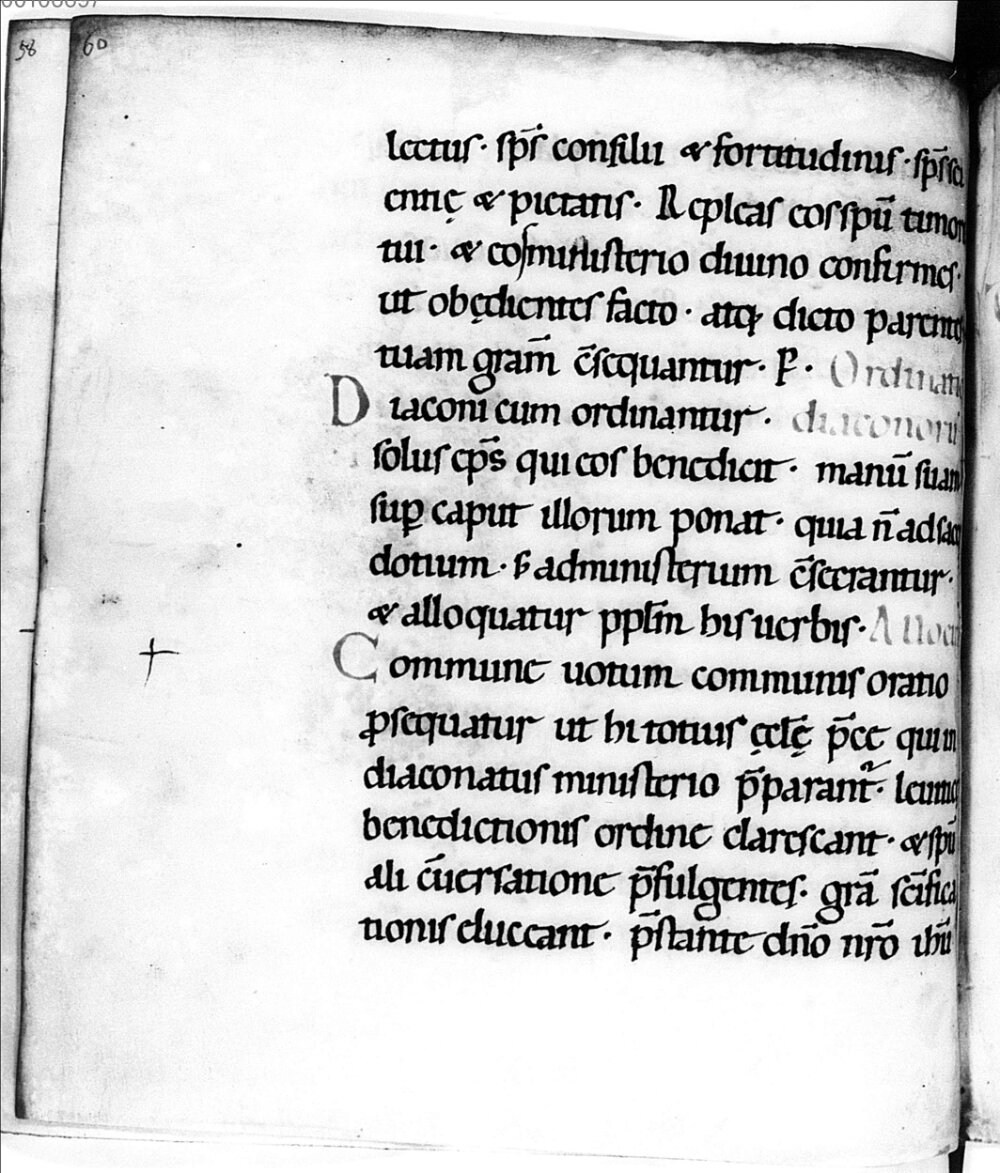 58 60
lectus· sp̄s consilii & fortitudinis· sp̄s sci
entię & pietatis· Repleas eos spū timor
tui· & eos ministerio diuino confirmes·
ut obędientes facto· atq; dicto parente
tuam gram̄ c̄sequantur· P̱· Ordinati
Diaconi cum ordinantur· diaconorū
solus ep̄s qui eos benedicit· manū suam
suꝑ caput illorum ponat· quia n̄ ad sac
dotium· s̄ ad ministerium c̄secrantur·
& alloquatur ppl̄m his uerbis· Allocu
Commune uotum communis oratio
ꝓsequatur ut hi totius ęcl̄ę p̄ce qui in
diaconatus ministerio p̄parant᷑· leuitice
benedictionis ordine clarescant· & spū
ali c̄uersatione p̄fulgentes· grā sc̄ifica
tionis eluceant· p̄stante dn̄o nr̄o ihū